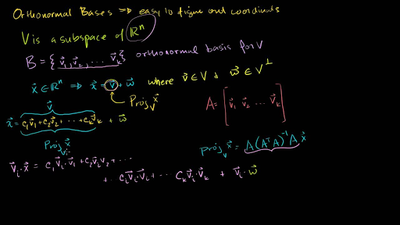 Orthonormal Bases ⇒ easy to figure out coordinates
V is a subspace of ℝⁿ
B = {v⃗₁, v⃗₂, ... v⃗ₖ} orthonormal basis for V
x⃗ ∈ ℝⁿ ⇒ x⃗ = v⃗ + w⃗ where v⃗ ∈ V + w⃗ ∈ V^⊥
Proj_V x⃗
x⃗ = c₁v⃗₁ + c₂v⃗₂ + ... + cₖv⃗ₖ + w⃗
A = [v⃗₁ v⃗₂ ... v⃗ₖ]
Proj_V x⃗
proj_V x⃗ = A(AᵀA)⁻¹A x⃗
v⃗ᵢ · x⃗ = c₁v⃗ᵢ·v⃗₁ + c₂v⃗ᵢ·v⃗₂ + ...
+ cᵢv⃗ᵢ·v⃗ᵢ + ... cₖv⃗ᵢ·v⃗ₖ + v⃗ᵢ·w⃗